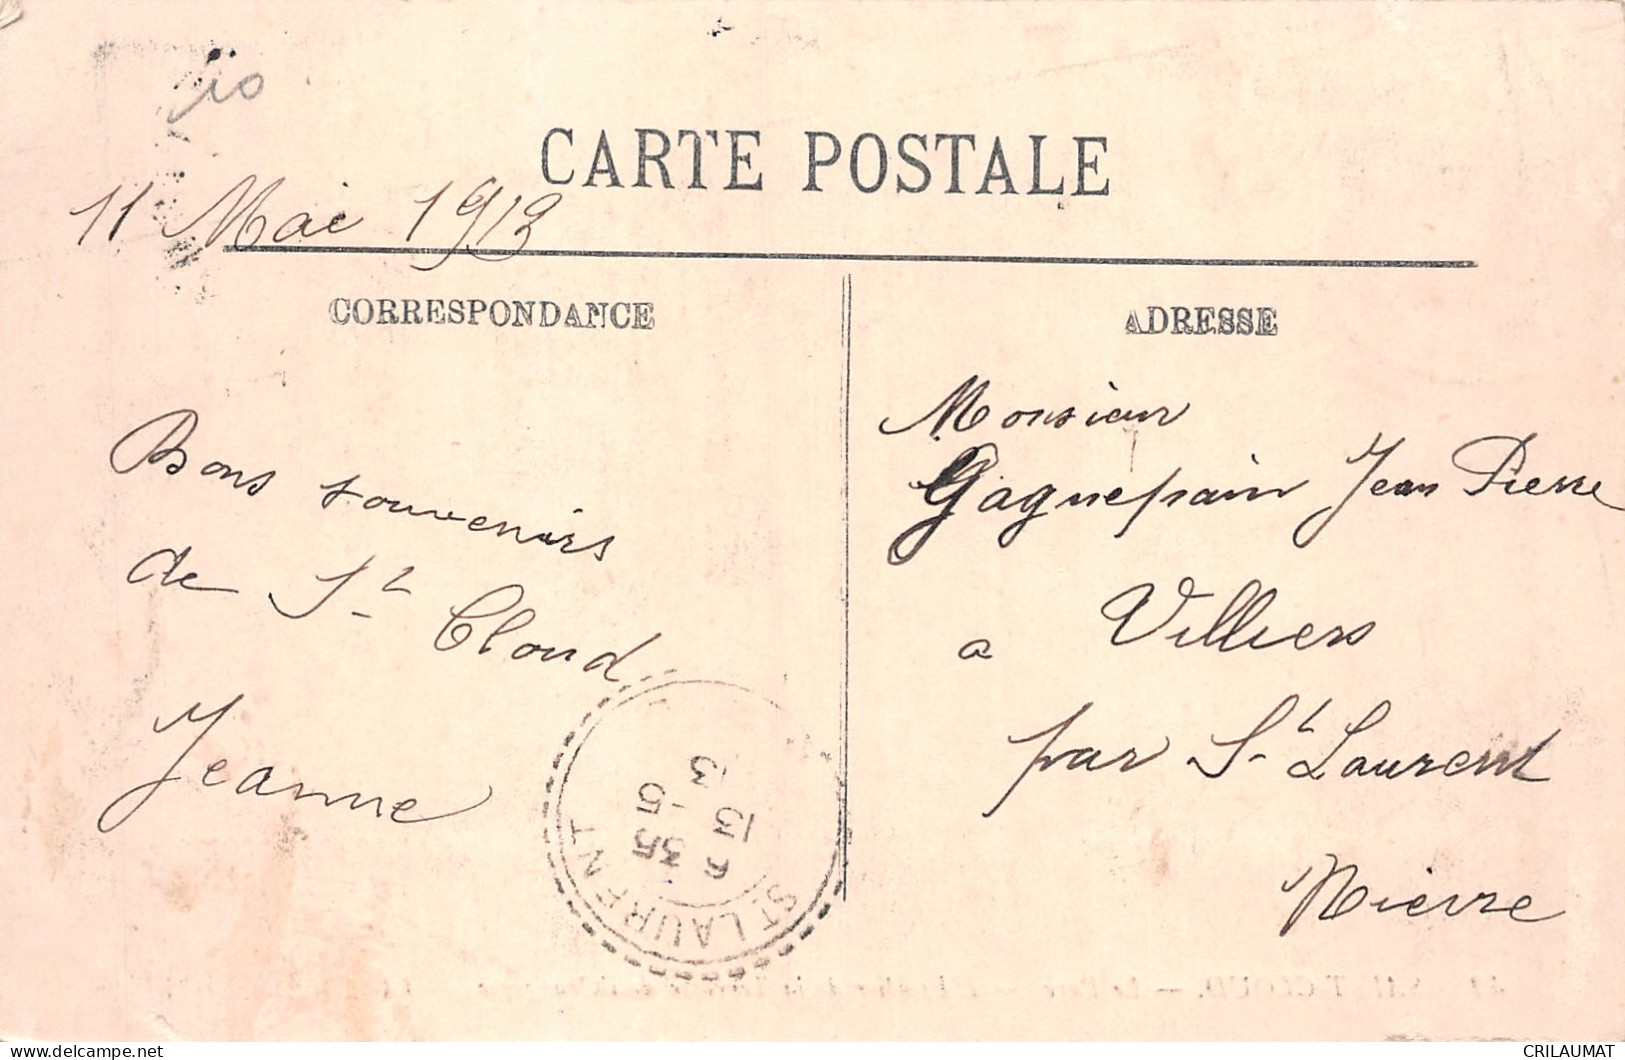 10
CARTE POSTALE
11 Mai 1913
CORRESPONDANCE
ADRESSE
Bons souvenirs
de St Cloud
Jeanne
Monsieur
Gagnepain Jean Pierre
a Villiers
par St Laurent
Nièvre
ST LAURENT
35
13 -5
13
delcampe.net
CRILAUMAT